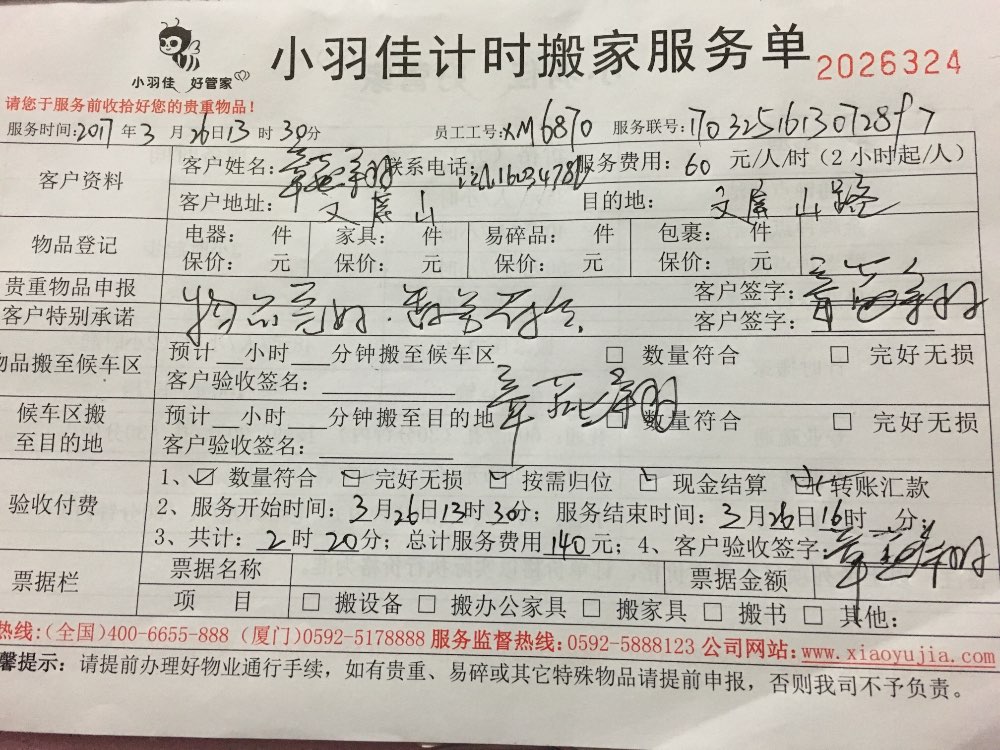 小羽佳 好管家
小羽佳计时搬家服务单 2026324
请您于服务前收拾好您的贵重物品！
服务时间：2017年3月26日13时30分 员工工号：XM6870 服务联号：
客户资料 客户姓名： 联系电话： 服务费用：60元/人/时（2小时起/人）
客户地址：文屏山 目的地：文屏山路
物品登记 电器： 件 家具： 件 易碎品： 件 包裹： 件
保价： 元 保价： 元 保价： 元 保价： 元
贵重物品申报 客户签字：
客户特别承诺 物品完好，数量符合。 客户签字：
物品搬至候车区 预计__小时__分钟搬至候车区 □ 数量符合 □ 完好无损
客户验收签名：
候车区搬至目的地 预计__小时__分钟搬至目的地 □ 数量符合 □ 完好无损
客户验收签名：
验收付费 1、☑ 数量符合 ☑ 完好无损 ☑ 按需归位 ☑ 现金结算 ☑ 转账汇款
2、服务开始时间：3月26日13时30分；服务结束时间：3月26日16时__分；
3、共计：2时20分；总计服务费用140元；4、客户验收签字：
票据栏 票据名称 票据金额
项 目 □ 搬设备 □ 搬办公家具 □ 搬家具 □ 搬书 □ 其他：
热线：（全国）400-6655-888（厦门）0592-5178888 服务监督热线：0592-5888123 公司网站：www.xiaoyujia.com
馨提示：请提前办理好物业通行手续，如有贵重、易碎或其它特殊物品请提前申报，否则我司不予负责。